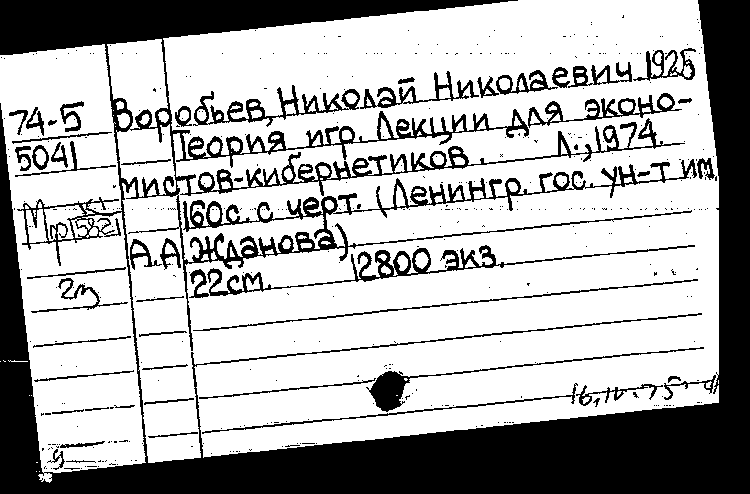 74-5 Воробьев, Николай Николаевич 1925
5041 Теория игр. Лекции для эконо-
мистов-кибернетиков. Л., 1974.
К1
Мф 5821 160с. с черт. (Ленингр. гос. ун-т им.
А.А. Жданова).
2м 22см. 12800 экз.
16.IV.75